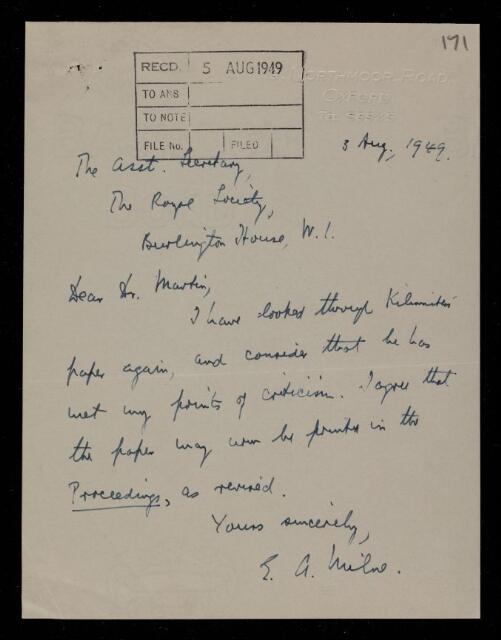 171
RECD. 5 AUG 1949
TO ANS
TO NOTE
FILE No. FILED
NORTHMOOR ROAD
OXFORD
3 Aug, 1949.
The Asst. Secretary,
The Royal Society,
Burlington House, W.1.
Dear Dr. Martin,
I have looked through Kilmister's
paper again, and consider that he has
met my points of criticism. I agree that
the paper may now be printed in the
Proceedings, as revised.
Yours sincerely,
E. A. Milne.